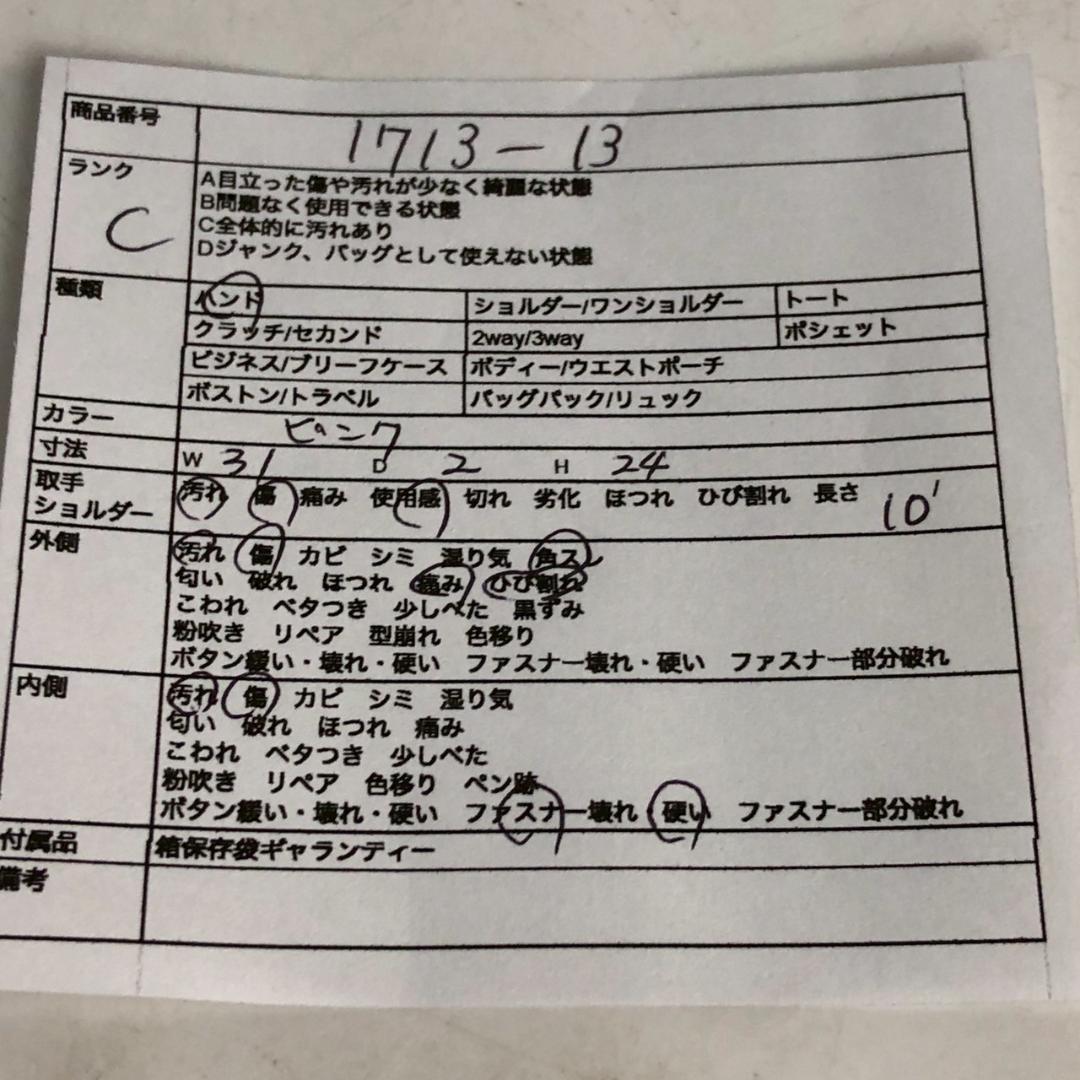 商品番号 1713-13
ランク C
A目立った傷や汚れが少なく綺麗な状態
B問題なく使用できる状態
C全体的に汚れあり
Dジャンク、バッグとして使えない状態
種類 ハンド ショルダー/ワンショルダー トート
クラッチ/セカンド 2way/3way ポシェット
ビジネス/ブリーフケース ボディー/ウエストポーチ
ボストン/トラベル バッグパック/リュック
カラー ピンク
寸法 W 31 D 2 H 24
取手 ショルダー 汚れ 傷 痛み 使用感 切れ 劣化 ほつれ ひび割れ 長さ 10'
外側 汚れ 傷 カビ シミ 湿り気 角スレ
匂い 破れ ほつれ 痛み ひび割れ
こわれ ベタつき 少しべた 黒ずみ
粉吹き リペア 型崩れ 色移り
ボタン緩い・壊れ・硬い ファスナー壊れ・硬い ファスナー部分破れ
内側 汚れ 傷 カビ シミ 湿り気
匂い 破れ ほつれ 痛み
こわれ ベタつき 少しべた
粉吹き リペア 色移り ペン跡
ボタン緩い・壊れ・硬い ファスナー壊れ 硬い ファスナー部分破れ
付属品 箱保存袋ギャランティー
備考